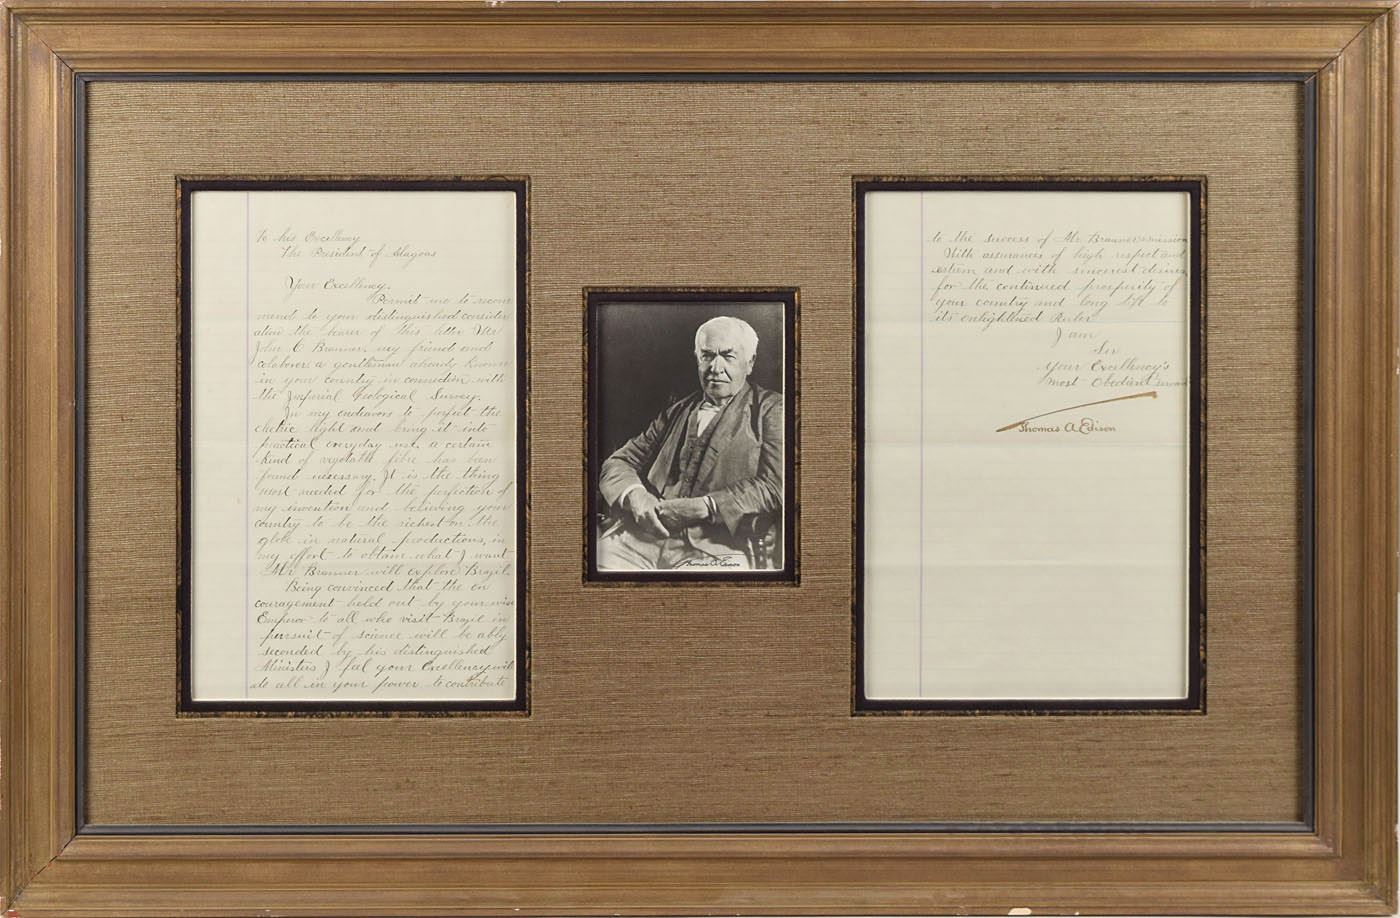 To his Excellency
The President of Alagoas
Your Excellency.
Permit me to recom
mend to your distinguished consider
ation the bearer of this letter Mr
John C Branner, my friend and
colaborer a gentleman already known
in your country in connection with
the Imperial Geological Survey.
In my endeavors to perfect the
electric light and bring it into
practical everyday use, a certain
kind of vegetable fibre has been
found necessary. It is the thing
most needed for the perfection of
my invention and believing your
country to be the richest on the
globe in natural productions, in
my effort to obtain what I want
Mr Branner will explore Brazil.
Being convinced that the en
couragement held out by your wise
Emperor to all who visit Brazil in
pursuit of science will be ably
seconded by his distinguished
Ministers I feel your Excellency will
do all in your power to contribute
Thomas A Edison
to the success of Mr Branner's mission
With assurances of high respect and
esteem and with sincerest desires
for the continued prosperity of
your country and long life to
its enlightened Ruler
I am
Sir
your Excellency's
most Obedient servant
Thomas A. Edison